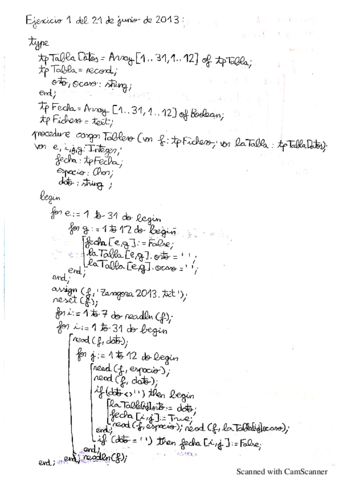 Ejercicio 1 del 21 de junio de 2013:
type
tpTablaDatos = Array [1..31,1..12] of tpTabla;
tpTabla = record;
orto, ocaso: string;
end;
tpFecha = Array [1..31,1..12] of Boolean;
tpFichero = text;
procedure cargarTablero (var f: tpFichero; var laTabla: tpTablaDatos);
var e, i, j, g: Integer;
fecha: tpFecha;
espacio: Char;
dato: string;
begin
for e := 1 to 31 do begin
for g := 1 to 12 do begin
fecha[e,g] := False;
laTabla[e,g].orto = '';
laTabla[e,g].ocaso = '';
end;
end;
assign (f, 'Zaragoza 2013.txt');
reset (f);
for i := 1 to 7 do readln(f);
for i := 1 to 31 do begin
read (f, dato);
for j := 1 to 12 do begin
read (f, espacio);
read (f, dato);
if (dato <> '') then begin
laTabla[i,j].orto := dato;
fecha[i,j] := True;
read (f, espacio); read (f, laTabla[i,j].ocaso);
end;
if (dato = '') then fecha[i,j] := False;
end; end; readln(f);
end;
Scanned with CamScanner